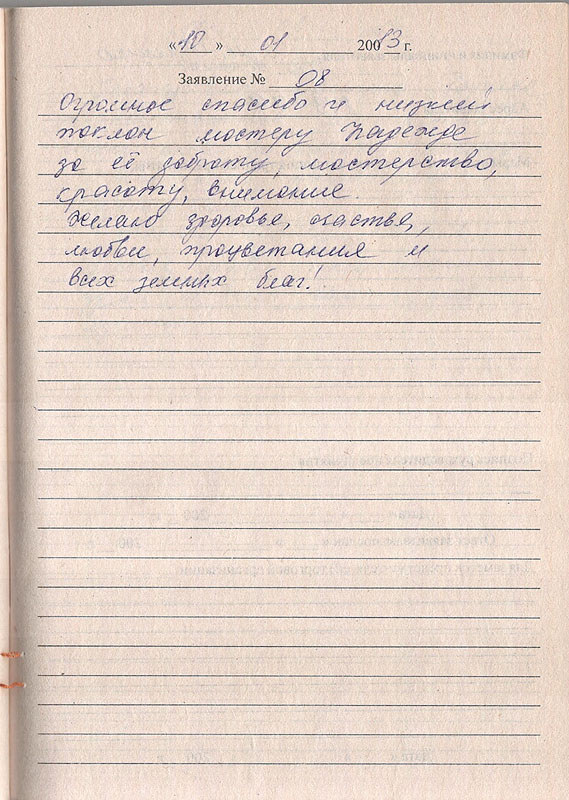 «10» 01 20013 г.
Заявление № 08
Огромное спасибо и низкий
поклон мастеру Надежде
за её доброту, мастерство,
красоту, внимание.
Желаю здоровье, счастья,
любви, процветания и
всех земных благ!